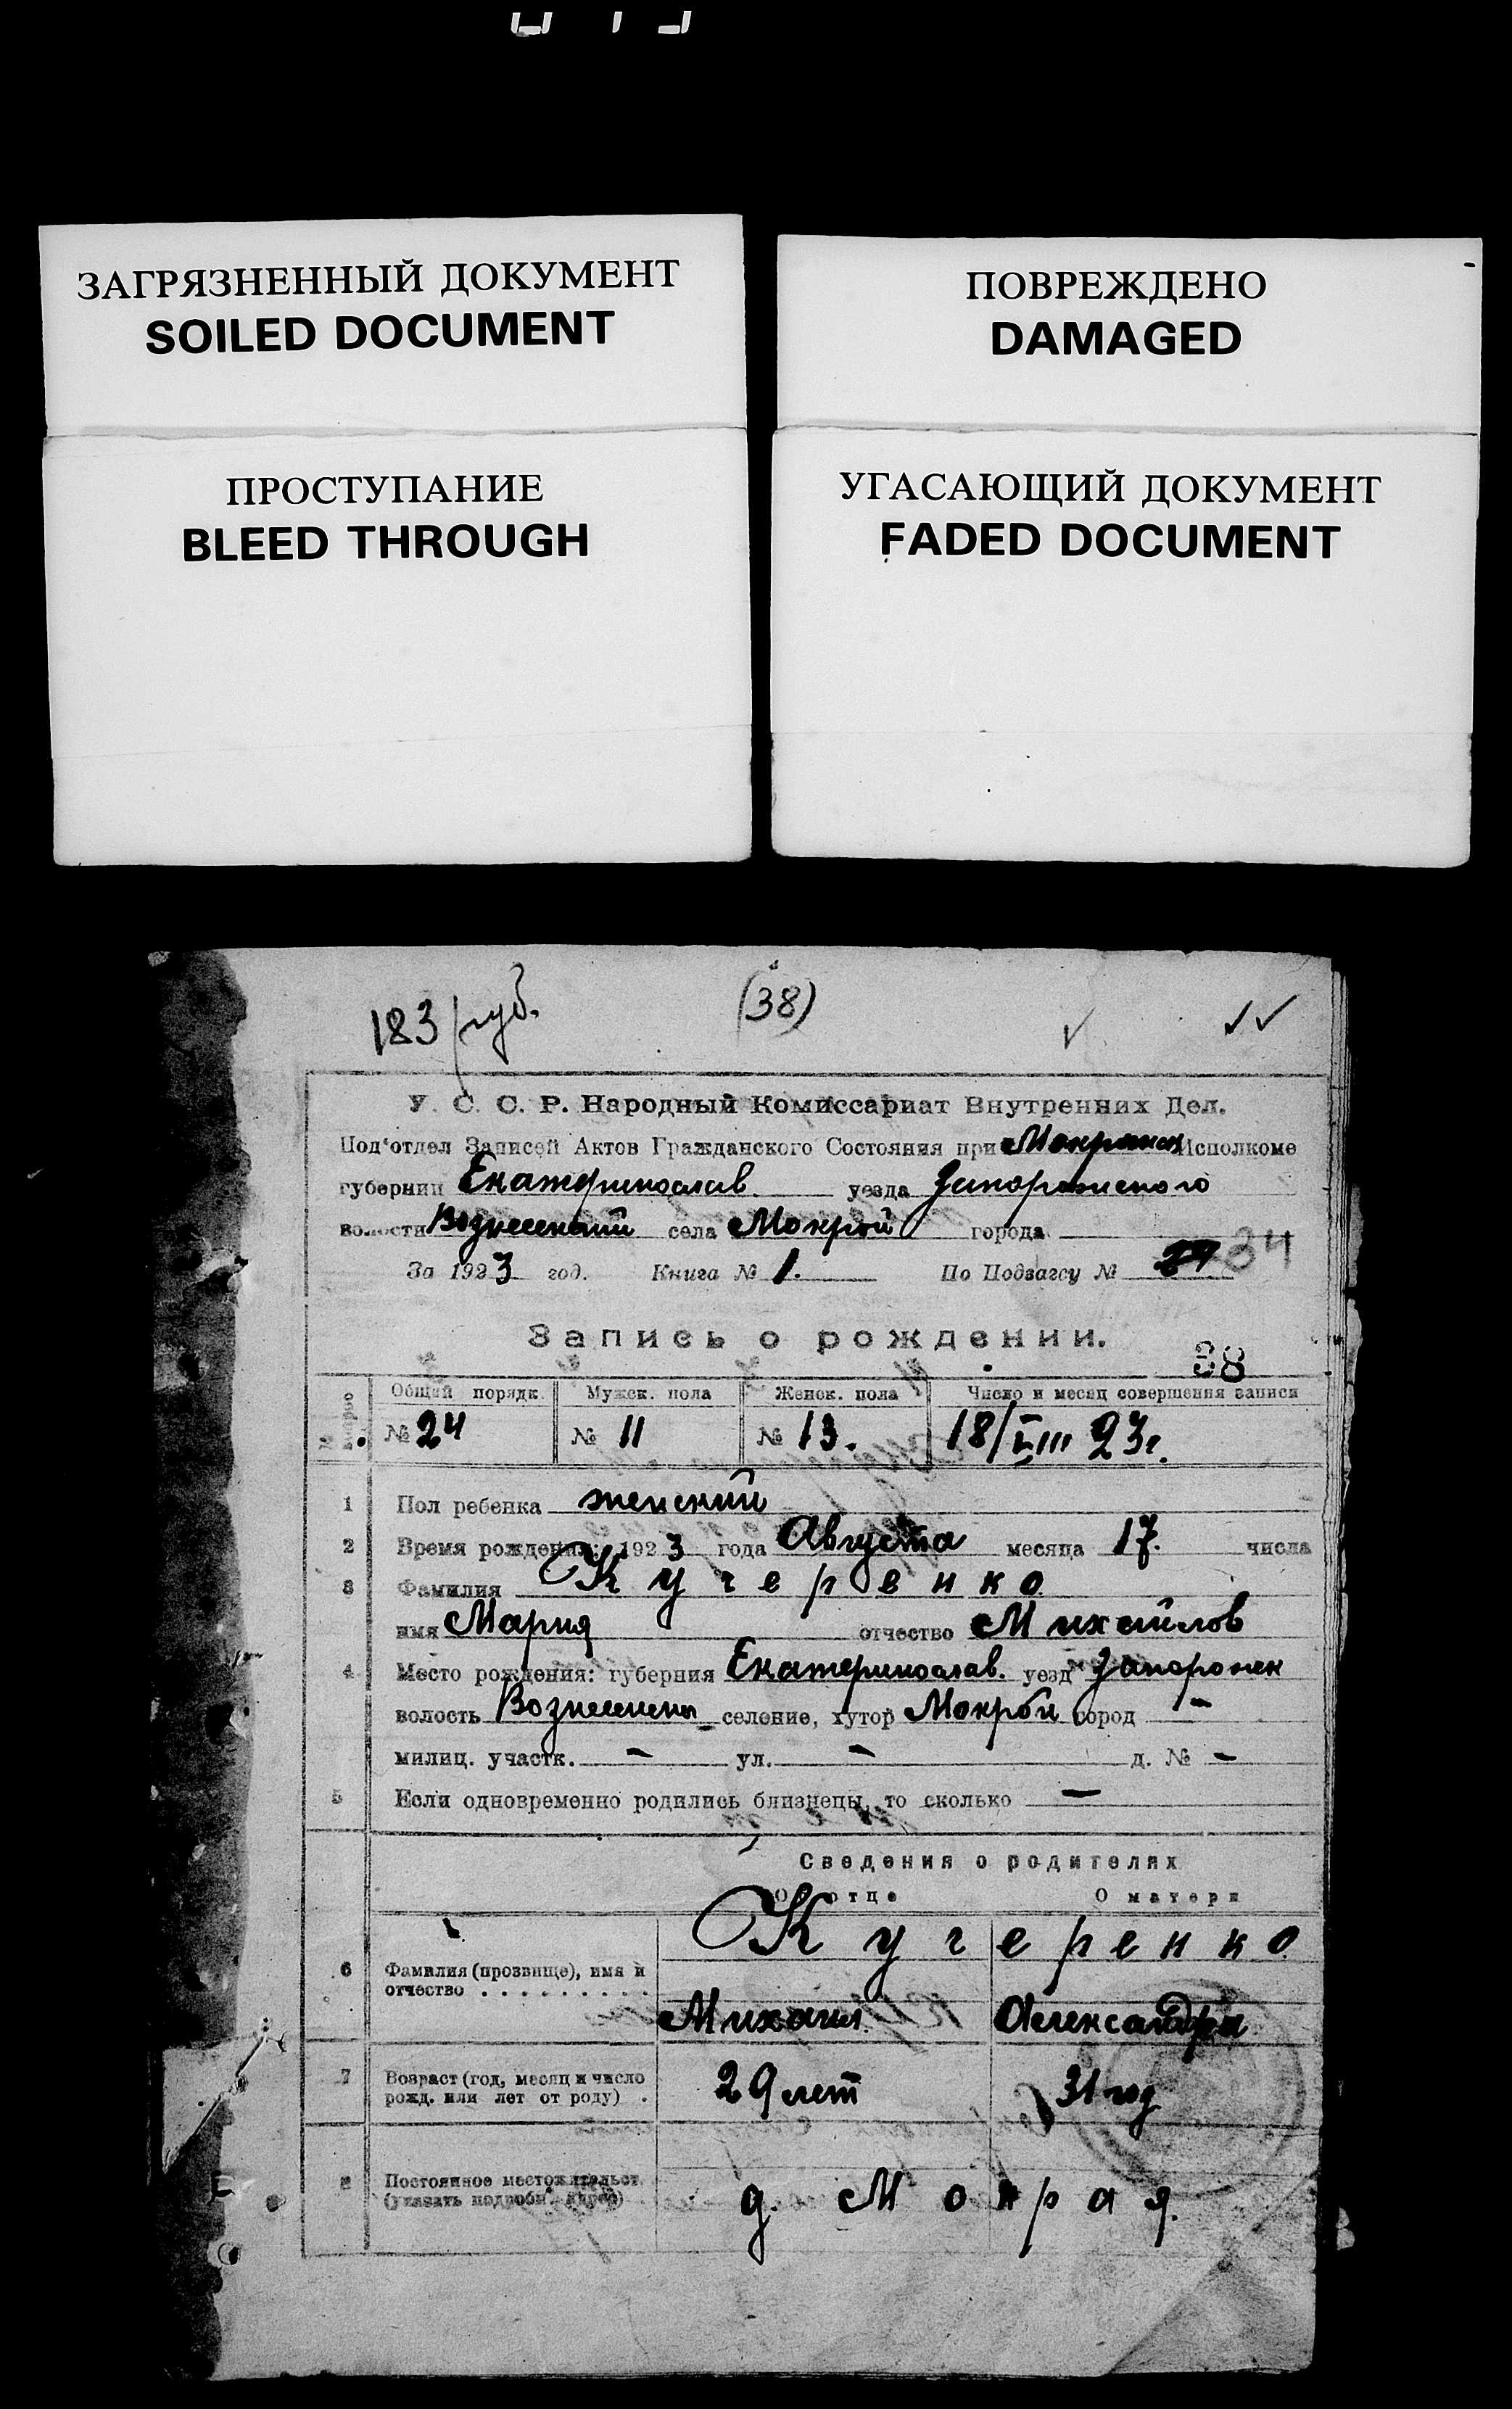 ЗАГРЯЗНЕННЫЙ ДОКУМЕНТ
SOILED DOCUMENT
ПОВРЕЖДЕНО
DAMAGED
ПРОСТУПАНИЕ
BLEED THROUGH
УГАСАЮЩИЙ ДОКУМЕНТ
FADED DOCUMENT
183 (38)
У. С. С. Р. Народный Комиссариат Внутренних Дел.
Под'отдел Записей Актов Гражданского Состояния при Исполкоме
губернии Екатеринослав. уезда Запорожского
волости Вознесенский села Мокрой города
За 1923 год. Книга № 1. По Подзагсу № 34
Запись о рождении.
38
Общий порядк. Мужск. пола Женск. пола Число и месяц совершения записи
№ 24 № 11 № 13. 18/VIII 23г.
1 Пол ребенка женский
2 Время рождения: 1923 года Августа месяца 17. числа
3 Фамилия Кучеренко
имя Мария отчество Михайлов
4 Место рождения: губерния Екатеринослав. уезд Запорожск
волость Вознесенск селение, хутор Мокрой город -
милиц. участк. - ул. - д. № -
5 Если одновременно родились близнецы, то сколько -
Сведения о родителях
О отце О матери
Кучеренко
6 Фамилия (прозвище), имя и
отчество . . . . . . . . .
Михаил. Александра
7 Возраст (год, месяц и число
рожд. или лет от роду) .
29 лет 31 год
8 Постоянное местожительст.
(указать подробн. адрес)
д. Мокрая.